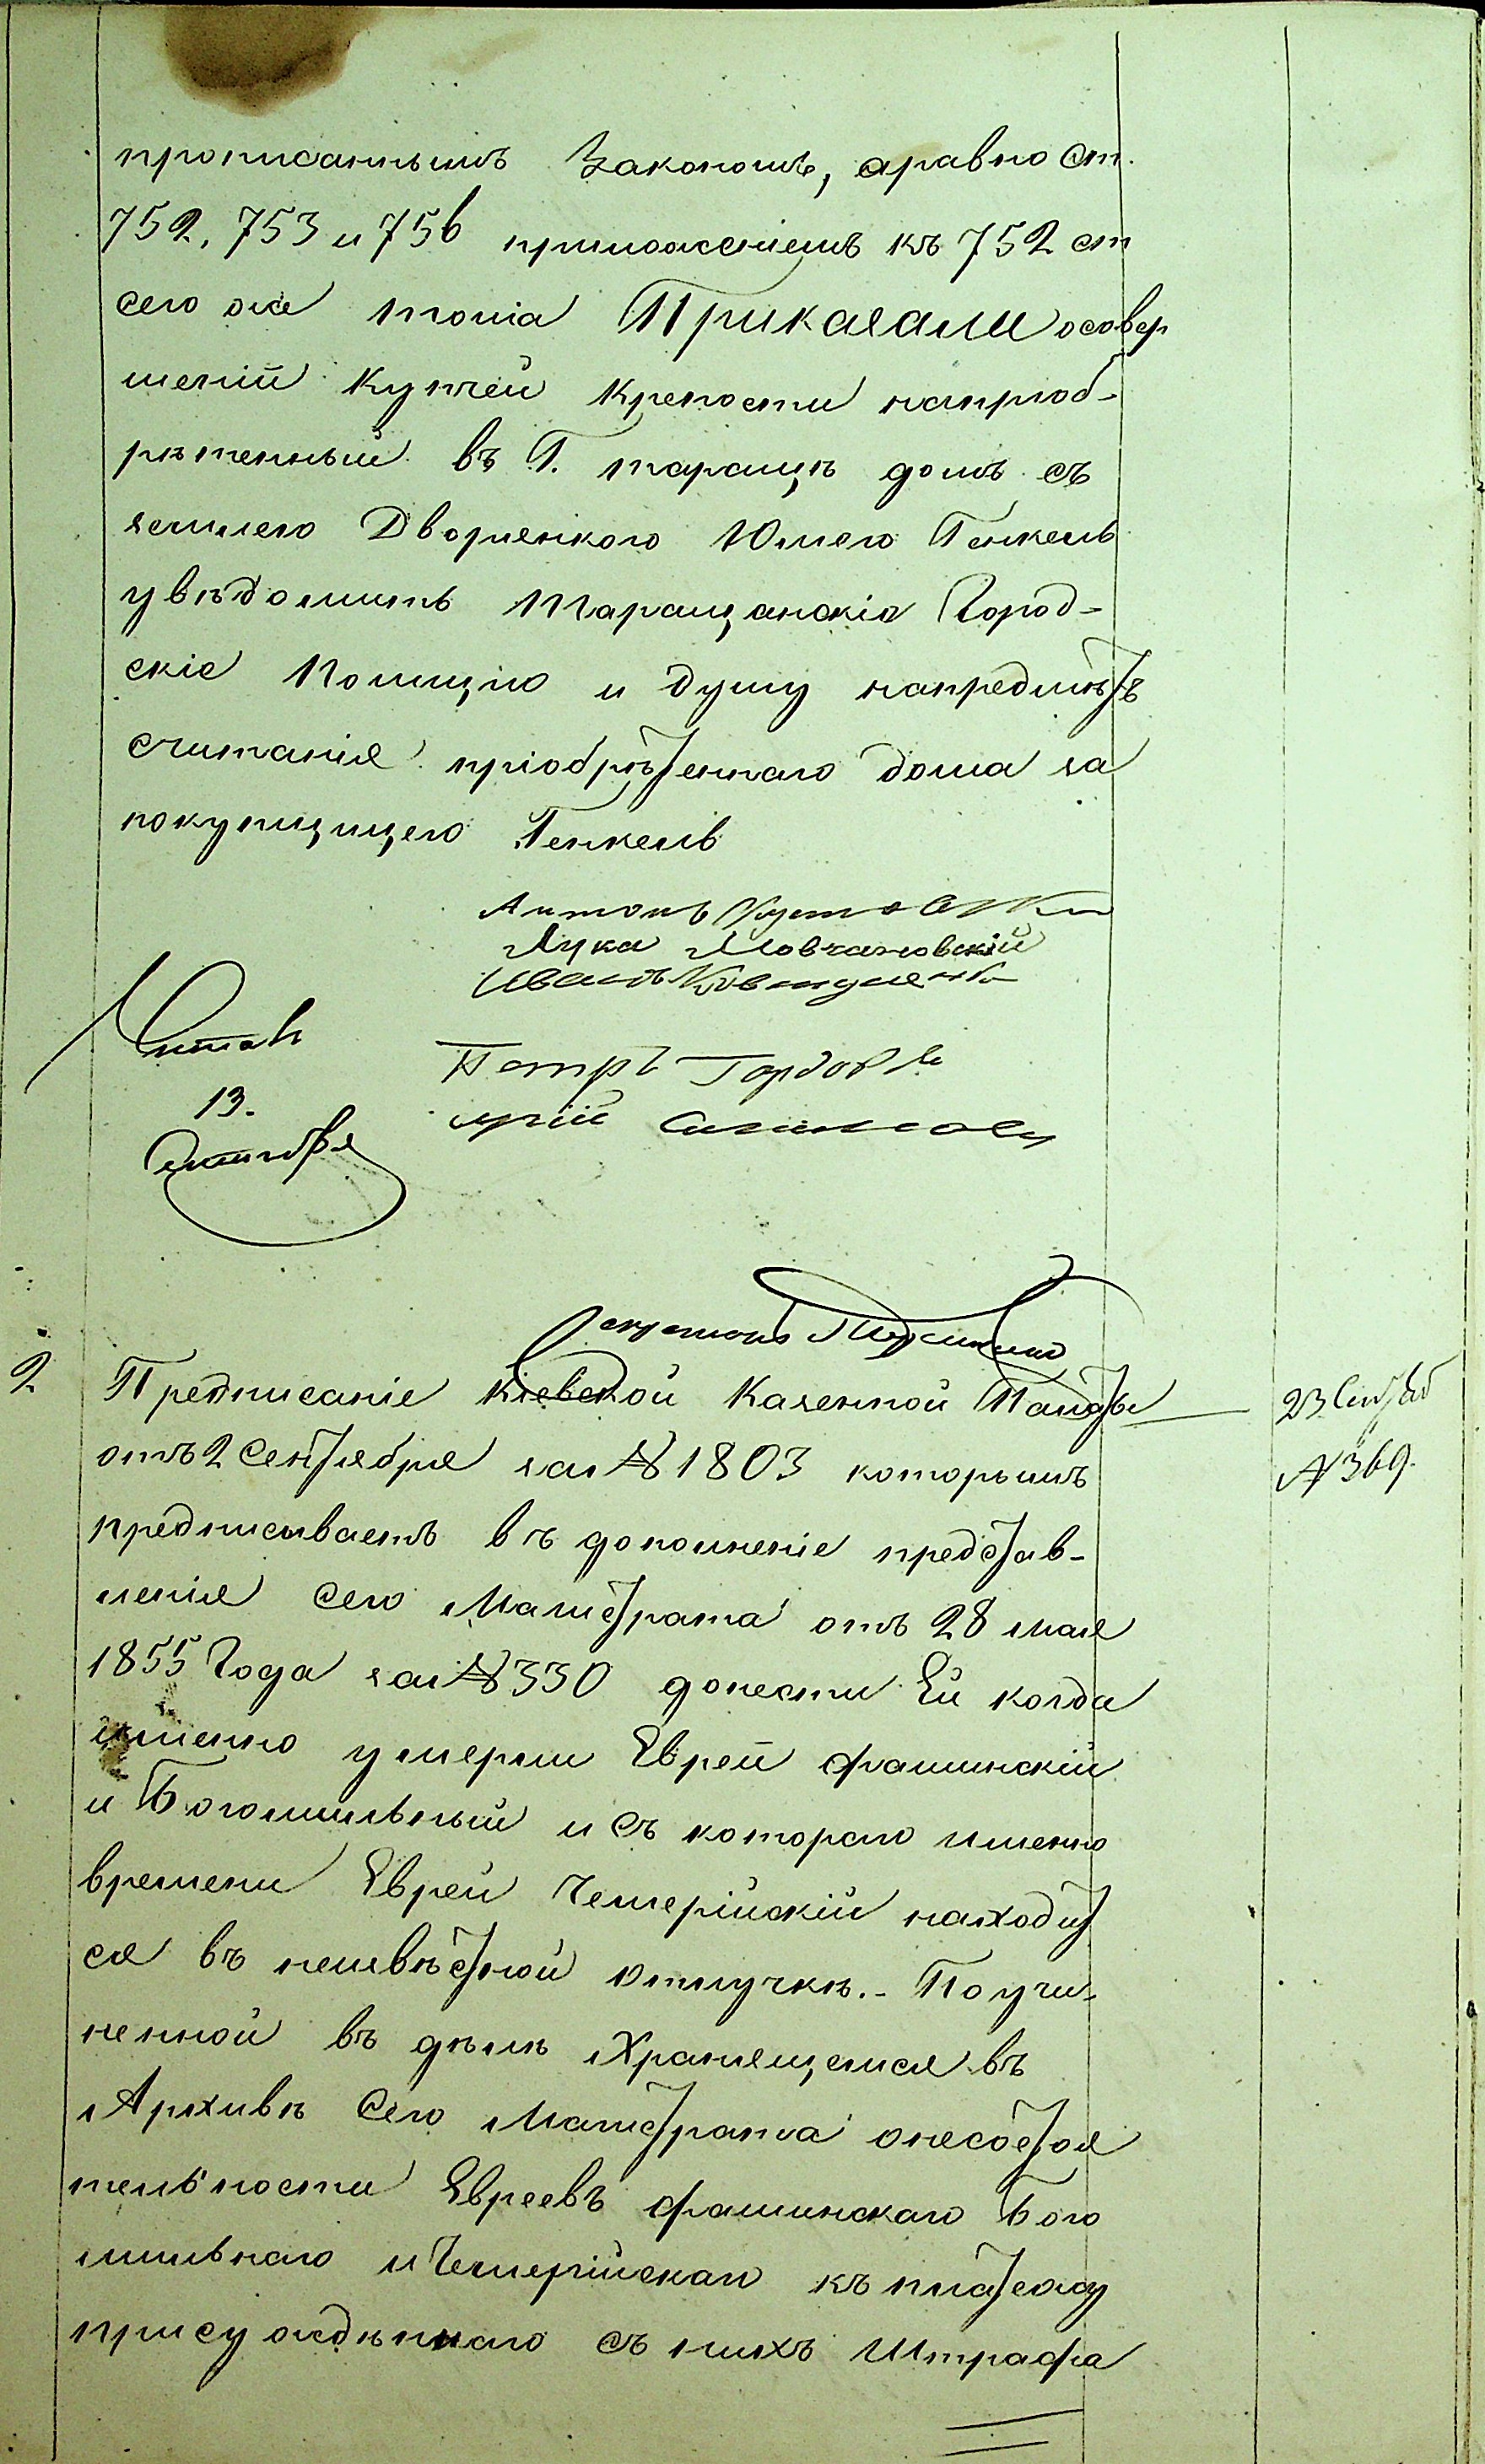 прописаннымъ Закономъ, аравно Ст.
752, 753 и 756 приложеніемъ къ 752 ст
сего же тома Приказали осовер
шеній Купчей Крепости напріоб-
рѣтенный въ Г. таращѣ домъ съ
землею Дворянкою Юлiею Генкель
увѣдомить Таращанскіа Город-
скіе Полицію и думу напредметъ
считанія пріобрѣтеннаго дома за
покупщицею Генкель
Антонъ
Лука Мовчановскій
Иванъ Ковтуненко
Читалъ
13.
Октября
Петръ
Секретарь
2
Предписаніе Кіевской Казенной Палаты
отъ 2 Сентября за № 1803 которымъ
предписываетъ въ дополненіе представ-
ленія сего Магистрата отъ 28 мая
1855 Года за № 330 донести Ей когда
именно умерли Евреи Фалинскій
и Богомильный и съ котораго именно
времени Еврей Чемерійскій находит
ся въ неизвѣстной отлучкѣ.- Поучи-
ненной въ дѣлѣ Хранящемся въ
Архивѣ Сего Магистрата онесостоя
тельности Евреевъ Фалинскаго Бого
мильнаго и Чемерійскаго къ платежу
присужденнаго съ нихъ Штрафа
23 Сентяб
№ 369.